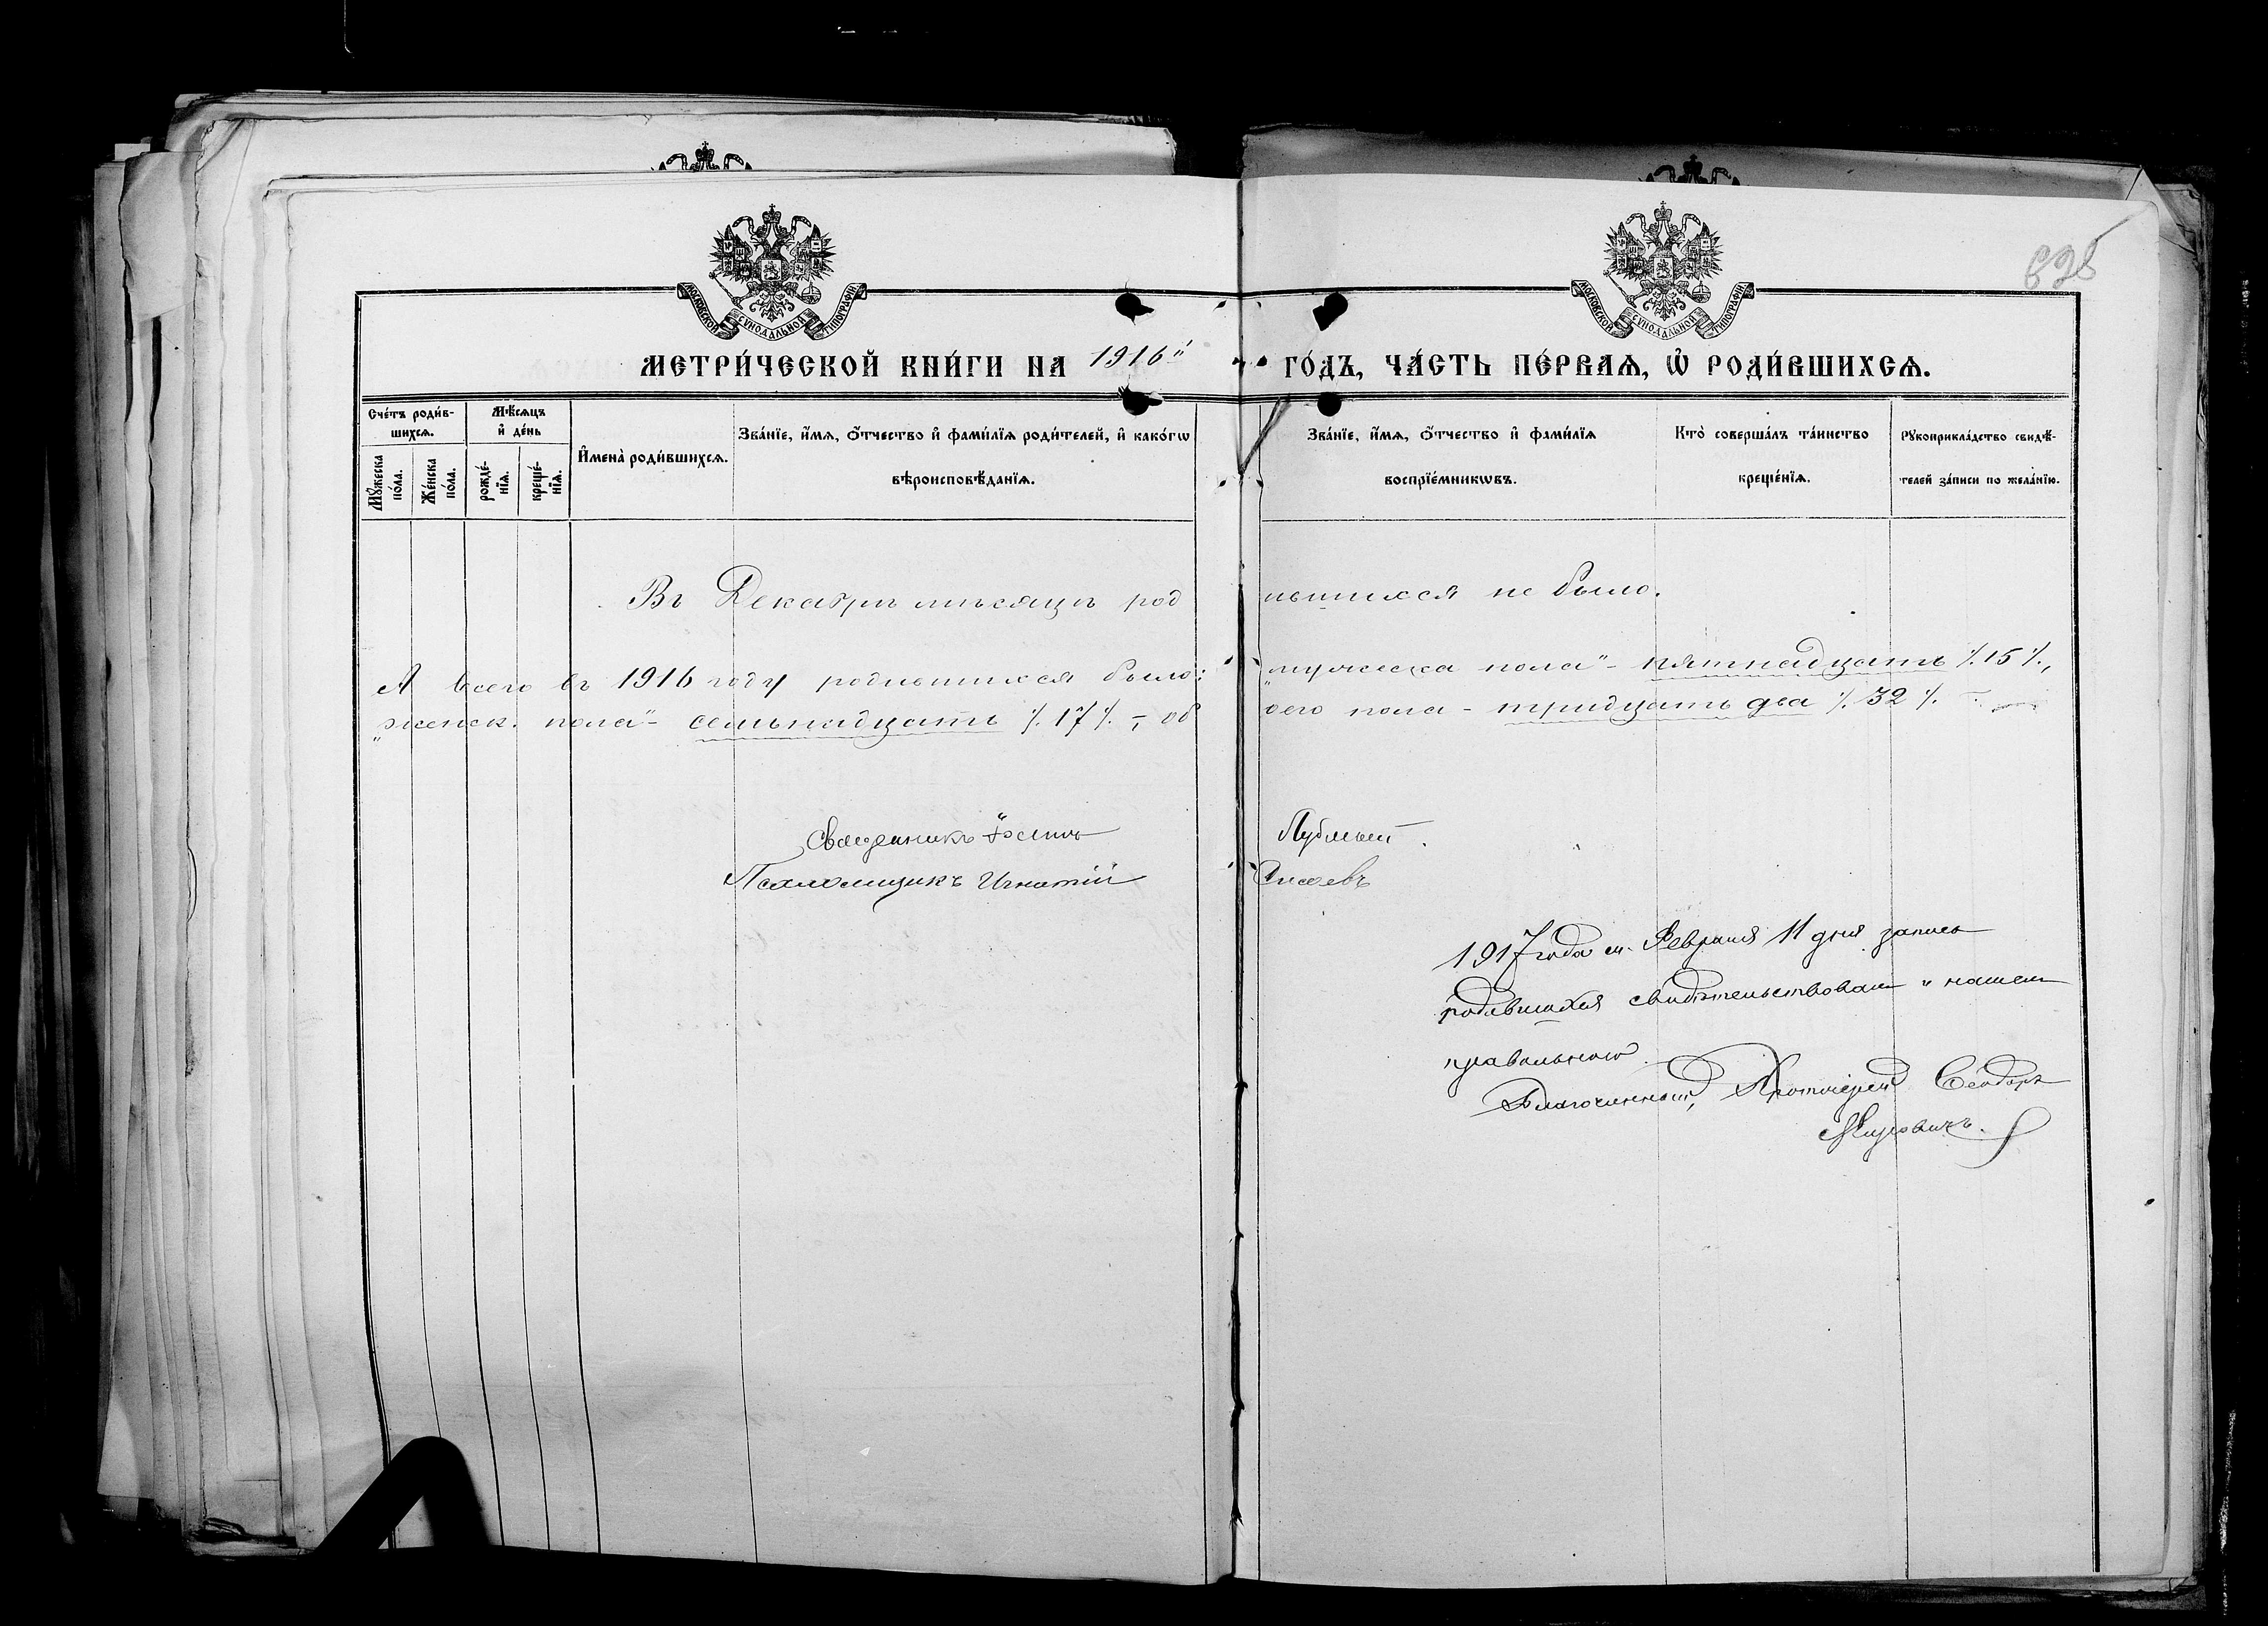 МОСКОВСКОЙ СУНОДАЛЬНОЙ ТИПОГРАФІИ
МОСКОВСКОЙ СУНОДАЛЬНОЙ ТИПОГРАФІИ
МЕТРИ́ЧЕСКОЙ КНИ́ГИ НА 1916й ГО́ДЪ, ЧА́СТЬ ПЕ́РВАѦ, Ѡ҆ РОДИ́ВШИХСѦ.
Сче́тъ роди́в-
шихсѧ.
Мѣ́сѧцъ
и҆ де́нь
Мꙋ́жеска
по́ла.
Же́нска
по́ла.
рожде́-
нїѧ.
креще́-
нїѧ.
И҆мена̀ роди́вшихсѧ.
Зва́нїе, и҆́мѧ, ѻ҆́тчество и҆ фами́лїѧ роди́телей, и҆ како́гѡ
вѣроисповѣ́данїѧ.
Зва́нїе, и҆́мѧ, ѻ҆́тчество и҆ фами́лїѧ
воспрїе́мникѡвъ.
Кто̀ соверша́лъ та́инство
креще́нїѧ.
Рꙋкоприкла́дство свидѣ́-
телей за́писи по жела́нїю.
Въ Декабрѣ мѣсяцѣ родившихся не было.
А всего въ 1916 году родившихся было: "мужеска пола" - пятнадцать /. 15 /.,
"женск. пола" - семьнадцать /. 17 /. -, обоего пола - тридцать два /. 32 /.
Священникъ
Псаломщикъ Игнатій
1917 года м. Февраля 11 дня запись
родившихся свидѣтельствовалъ и нашелъ
правильною.
Благочинный, Протоіерей Ѳеодоръ